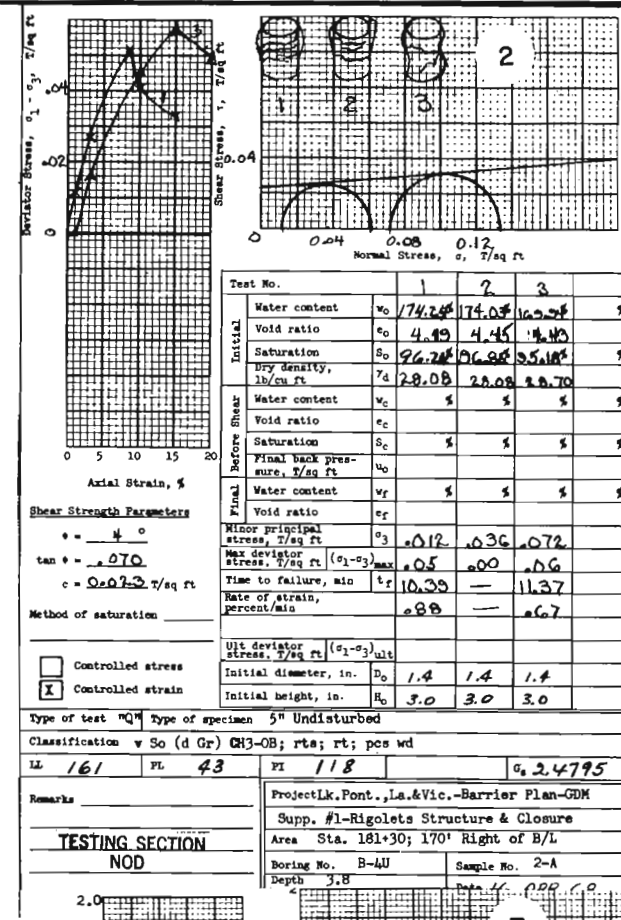 2
1 2 3
Deviator Stress, σ1 - σ3, T/sq ft
.04
.02
0
0 5 10 15 20
Axial Strain, %
Shear Stress, τ, T/sq ft
0.04
0 0.04 0.08 0.12
Normal Stress, σ, T/sq ft
Shear Strength Parameters
φ = 4 °
tan φ = .070
c = 0.023 T/sq ft
Method of saturation
Controlled stress
X Controlled strain
Test No. 1 2 3
Initial
Water content wo 174.2% 174.0% %
Void ratio eo 4.99 4.45
Saturation So 96.2% 96.8% 95.18% %
Dry density, lb/cu ft γd 28.08 28.08 28.70
Before Shear
Water content wc % % % %
Void ratio ec
Saturation Sc % % % %
Final back pressure, T/sq ft uo
Final
Water content wf % % % %
Void ratio ef
Minor principal stress, T/sq ft σ3 .012 .036 .072
Max deviator stress, T/sq ft (σ1-σ3)max .05 .00 .06
Time to failure, min tf 10.39 — 11.37
Rate of strain, percent/min .88 — .67
Ult deviator stress, T/sq ft (σ1-σ3)ult
Initial diameter, in. Do 1.4 1.4 1.4
Initial height, in. Ho 3.0 3.0 3.0
Type of test "Q" Type of specimen 5" Undisturbed
Classification v So (d Gr) CH3-OB; rts; rt; pcs wd
LL 161 PL 43 PI 118 Gs 2.4795
Remarks
TESTING SECTION
NOD
Project Lk.Pont.,La.&Vic.-Barrier Plan-GDM
Supp. #1-Rigolets Structure & Closure
Area Sta. 181+30; 170' Right of B/L
Boring No. B-4U Sample No. 2-A
Depth 3.8
2.0